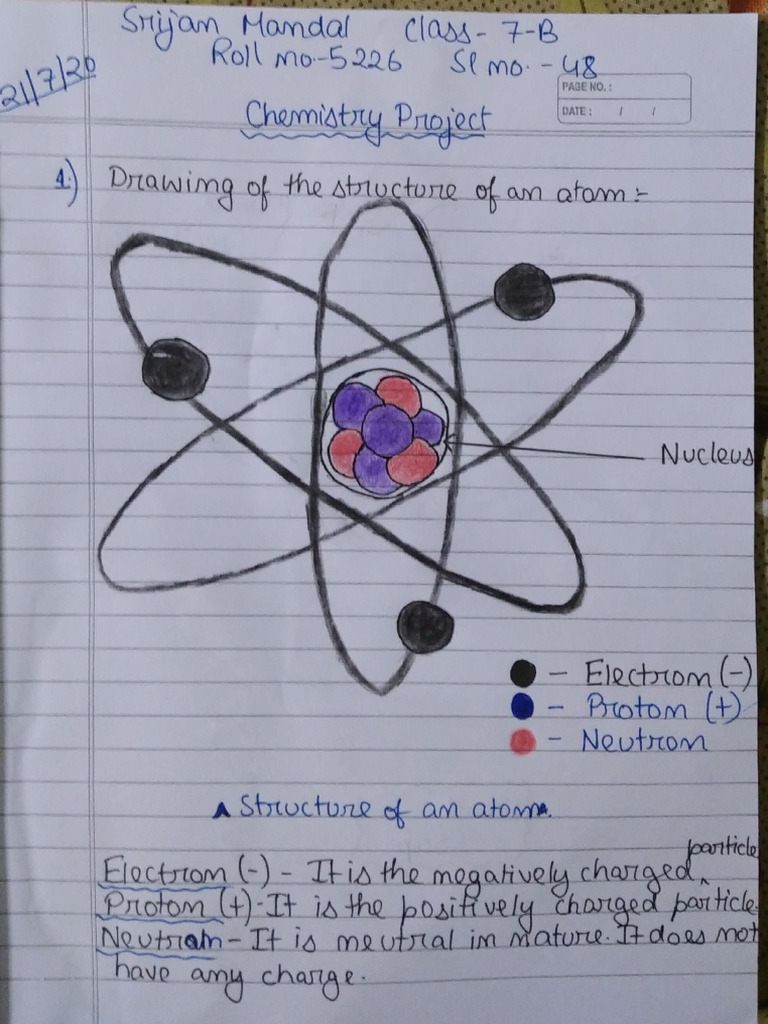 Srijan Mandal Class - 7-B
Roll no.-5226 Sl no. - 48
21/7/20
PAGE NO.:
DATE: / /
Chemistry Project
1.) Drawing of the structure of an atom :-
Nucleus
- Electron (-)
- Proton (+)
- Neutron
Structure of an atom.
particle
Electron (-) - It is the negatively charged
Proton (+) - It is the positively charged particle
Neutron - It is neutral in nature. It does not
have any charge.